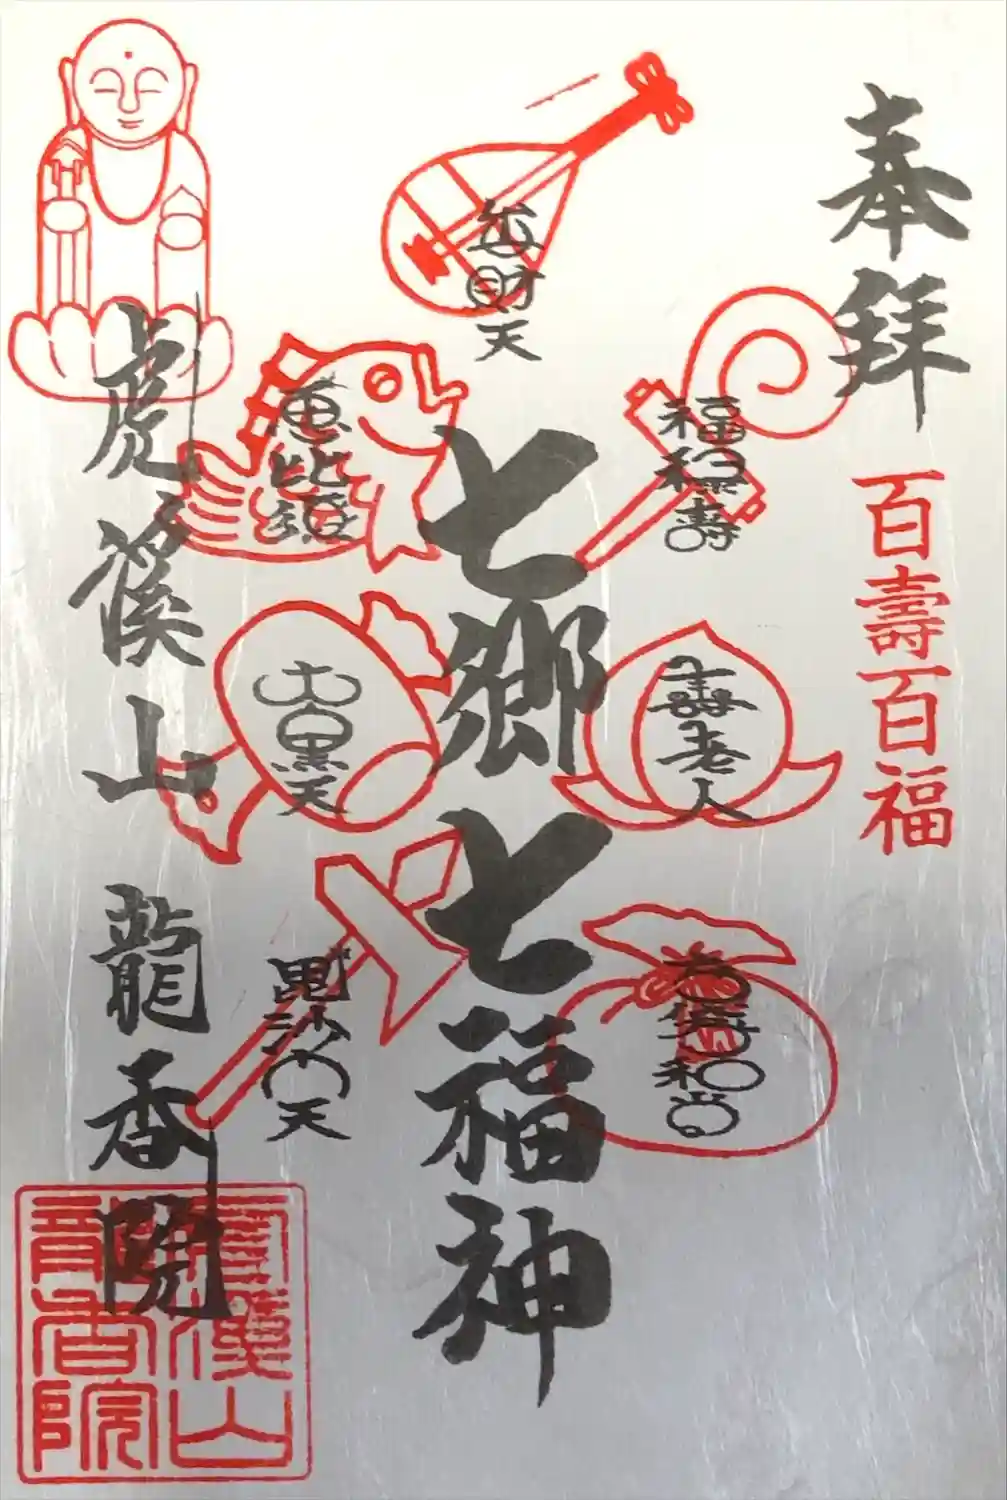 奉拝
百壽百福
七郷七福神
弁財天
福禄壽
恵比須
壽老人
大黒天
布袋和尚
毘沙門天
虎溪山 龍香院
虎溪山
龍香院